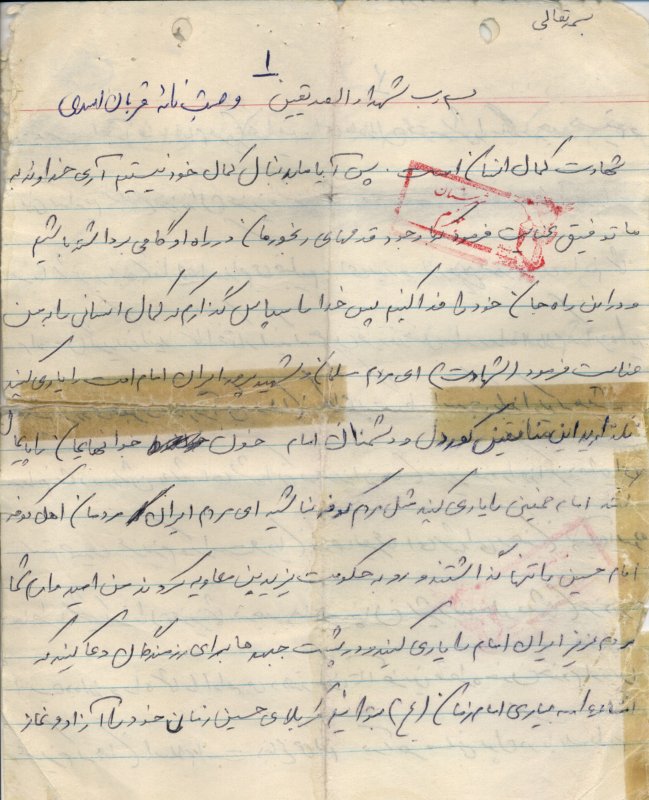 بسمه تعالی
۱
بسم رب شهداء و الصدیقین وصیت نامه قربان اسدی
شهادت کمال انسان است. پس آیا ما بدنبال کمال خود نیستیم آری خداوند به
ما توفیق عنایت فرمود که خود قدمهای رنجورمان در راه او گامی برداشته باشیم
و در این راه جان خود را فدا کنیم پس خدا را سپاس گذارم که کمال انسانی را به من
عنایت فرمود (شهادت) ای مردم مسلمان و شهید پرور ایران امام امت را یاری کنید
نگذارید این منافقین کوردل و دشمنان امام خون جوانهایمان را پایمال
کنند امام خمینی را یاری کنید مثل مردم کوفه نباشید ای مردم ایران مردمان اهل کوفه
امام حسین را تنها گذاشتند و رو به حکومت یزید بن معاویه کردند من امیدوارم شما
مردم عزیز ایران امام را یاری کنید و در پشت جبهه ها برای رزمندگان دعا کنید که
انشاءالله بیاری امام زمان (عج) بتوانند کربلای حسین زمان خود را آزاد و نماز